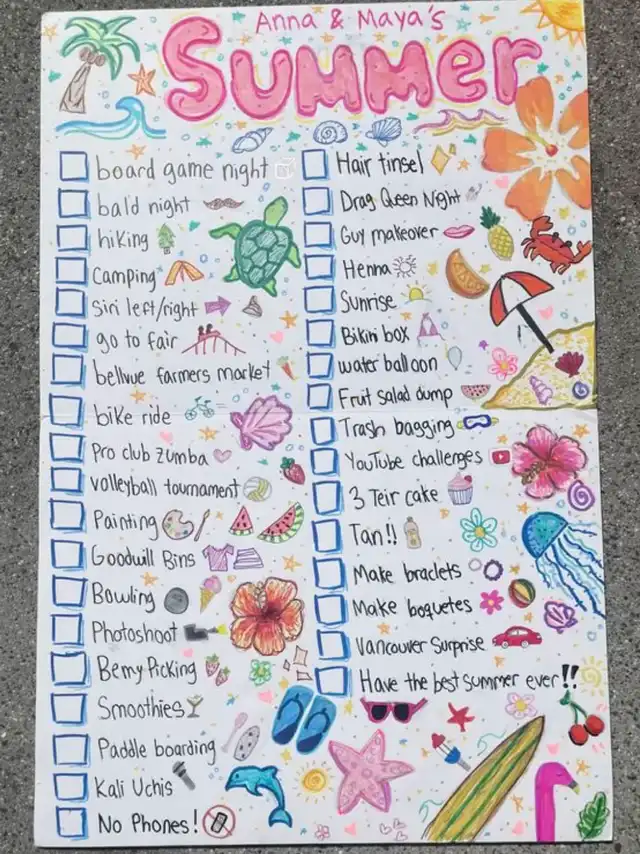 Anna & Maya's
Summer
board game night
bald night
hiking
Camping
Siri left/right
go to fair
bellvue farmers market
bike ride
Pro club zumba
volleyball tournament
Painting
Goodwill Bins
Bowling
Photoshoot
Berry Picking
Smoothies
Paddle boarding
Kali Uchis
No Phones!
Hair tinsel
Drag Queen Night
Guy makeover
Henna
Sunrise
Bikini box
water balloon
Fruit salad dump
Trash bagging
YouTube challenges
3 Teir cake
Tan!!
Make braclets
Make boquetes
Vancouver Surprise
Have the best summer ever!!